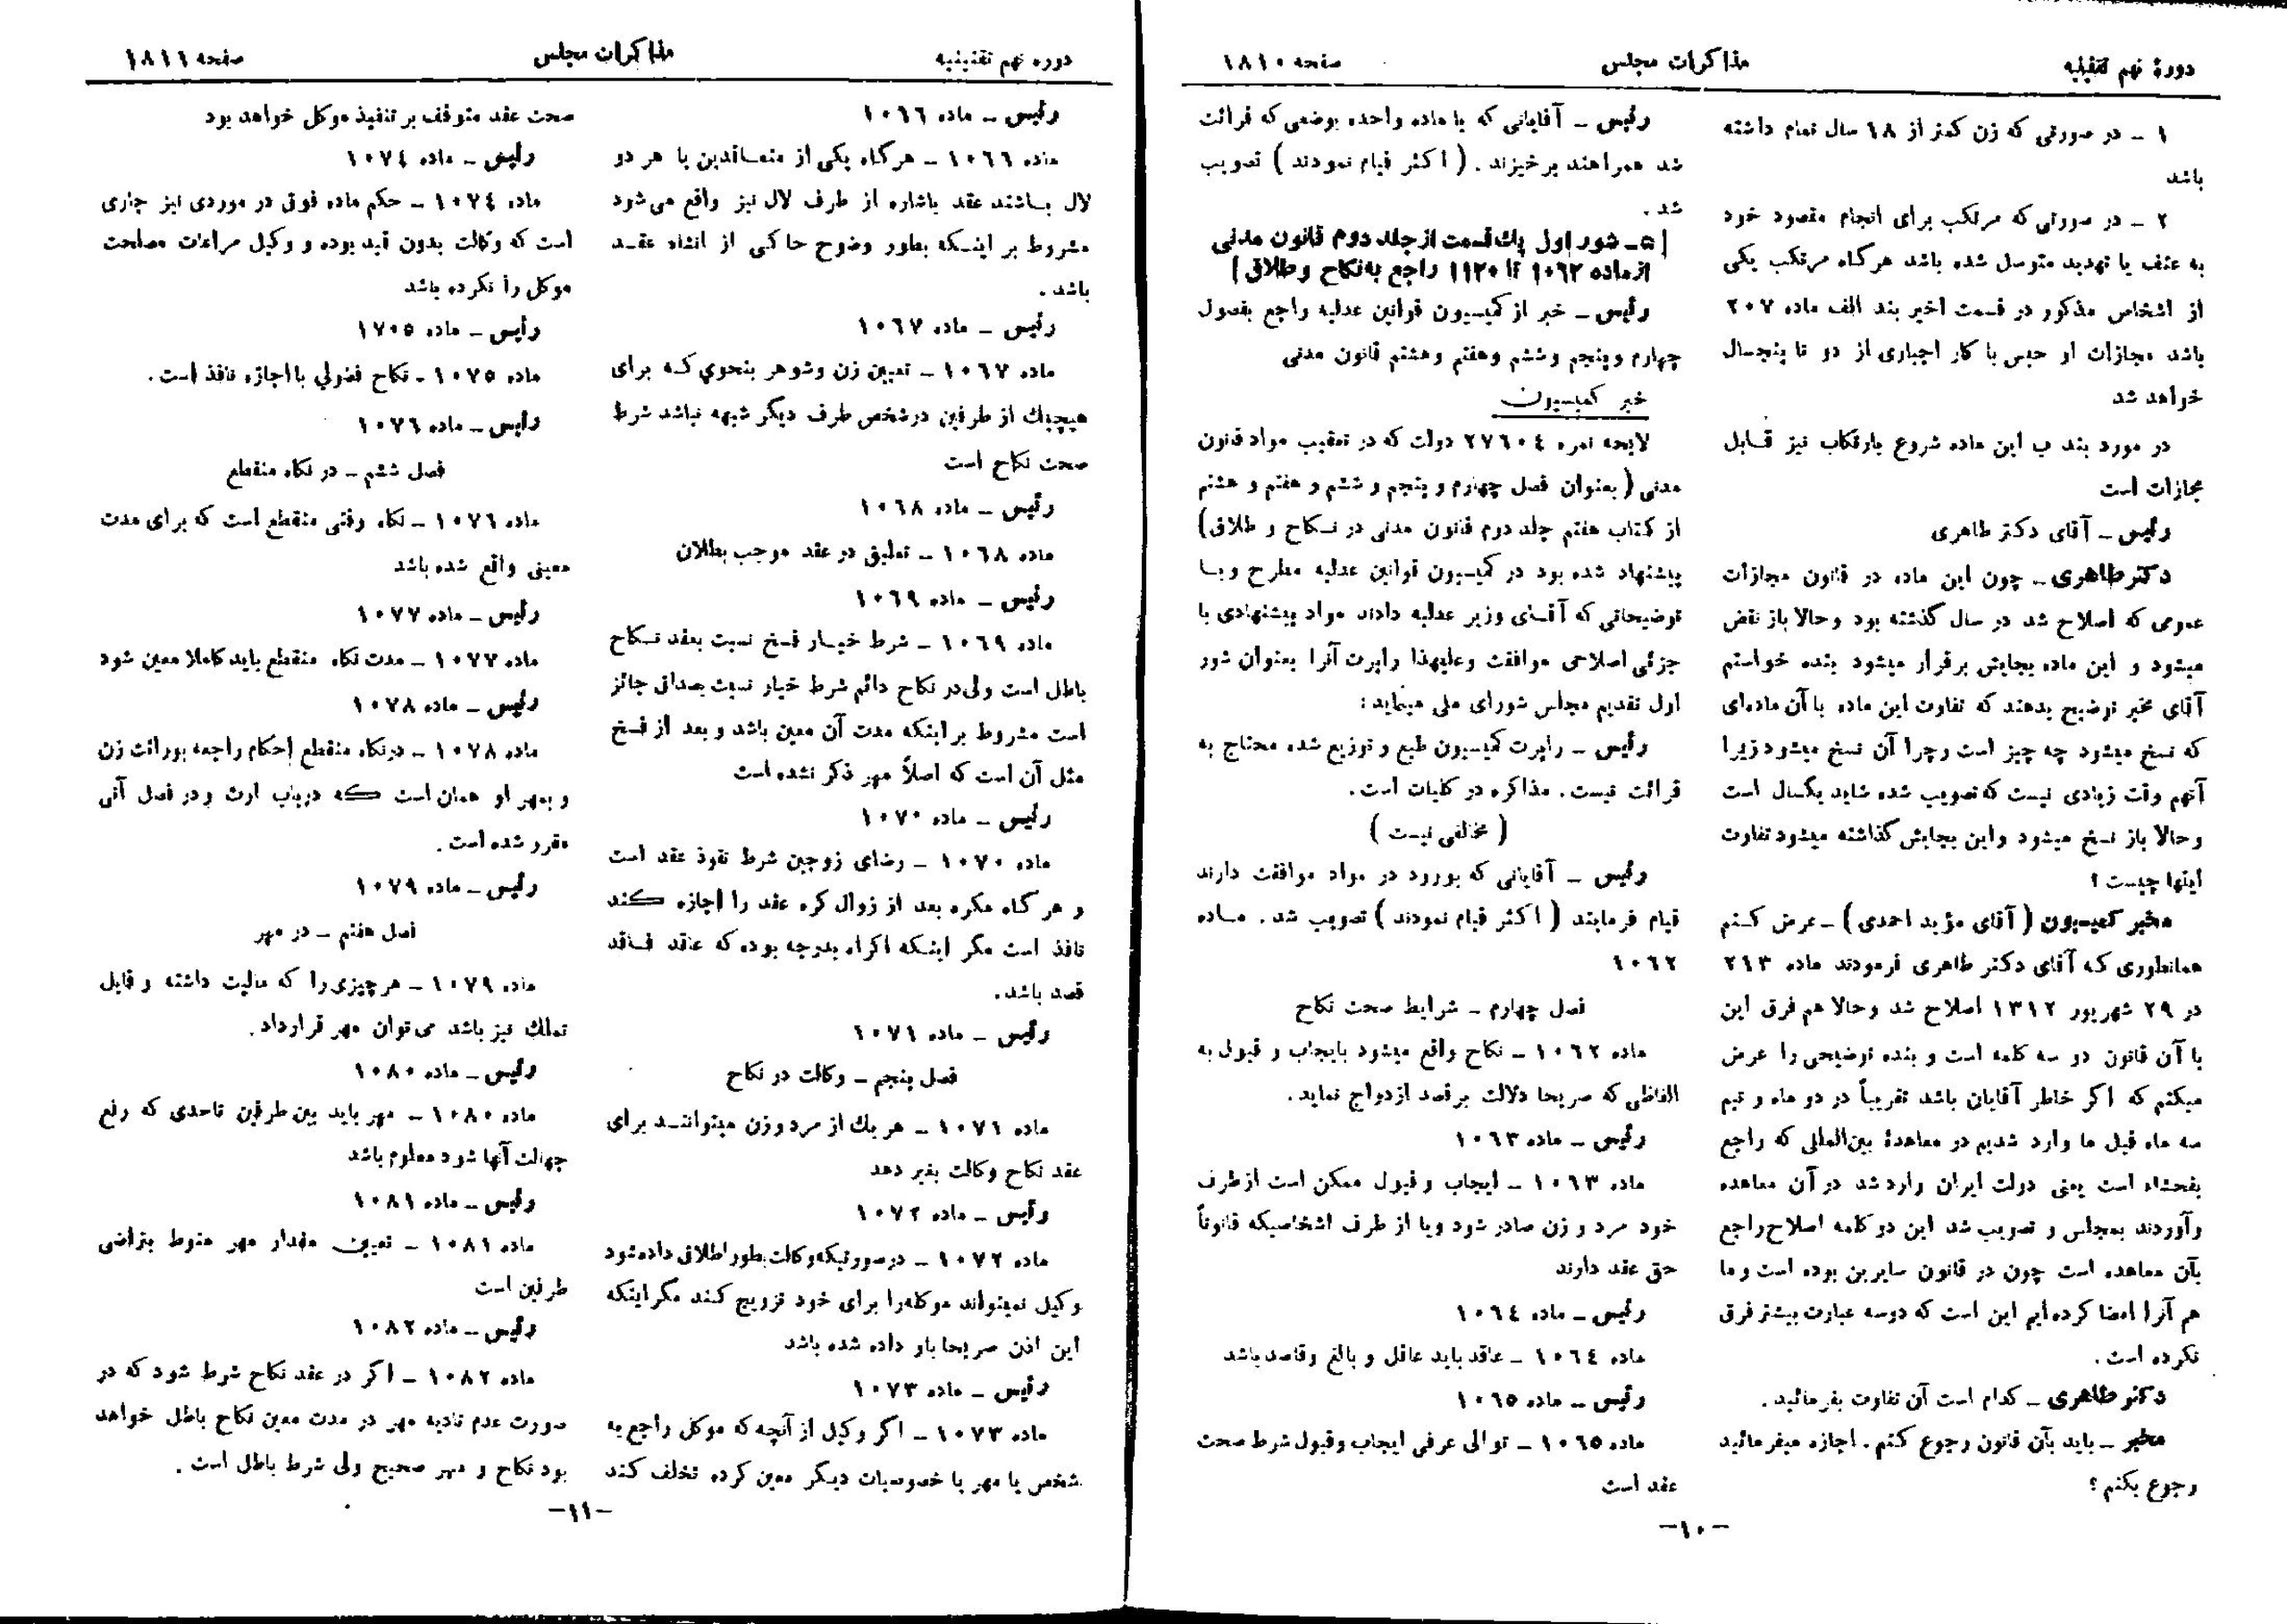 دورهٔ نهم تقنینیه
مذاکرات مجلس
صفحه ۱۸۱۰
۱ ـ در صورتی که زن کمتر از ۱۸ سال تمام داشته
باشد
۲ ـ در صورتی که مرتکب برای انجام مقصود خود
به عنف یا تهدید متوسل شده باشد هرگاه مرتکب یکی
از اشخاص مذکور در قسمت اخیر بند الف ماده ۲۰۷
باشد مجازات او حبس با کار اجباری از دو تا پنجسال
خواهد شد
در مورد بند ب این ماده شروع بارتکاب نیز قابل
مجازات است
رئیس ـ آقای دکتر طاهری
دکتر طاهری ـ چون این ماده در قانون مجازات
عمومی که اصلاح شد در سال گذشته بود و حالا باز نقض
میشود و این ماده بجایش برقرار میشود بنده خواستم
آقای مخبر توضیح بدهند که تفاوت این ماده با آن ماده‌ای
که نسخ میشود چه چیز است و چرا آن نسخ میشود زیرا
آنهم وقت زیادی نیست که تصویب شده شاید یکسال است
و حالا باز نسخ میشود و این بجایش گذاشته میشود تفاوت
اینها چیست؟
مخبر کمیسیون (آقای مؤید احمدی) ـ عرض کنم
همانطوری که آقای دکتر طاهری فرمودند ماده ۲۱۳
در ۲۹ شهریور ۱۳۱۲ اصلاح شد و حالا هم فرق این
با آن قانون دو سه کلمه است و بنده توضیحی را عرض
میکنم که اگر خاطر آقایان باشد تقریباً در دو ماه و نیم
سه ماه قبل ما وارد شدیم در معاهدهٔ بین‌المللی که راجع
بفحشاء است یعنی دولت ایران وارد شد در آن معاهده
وآوردند بمجلس و تصویب شد این دو کلمه اصلاح راجع
بآن معاهده است چون در قانون سایرین بوده است و ما
هم آنرا امضا کرده‌ایم این است که دوسه عبارت بیشتر فرق
نکرده است.
دکتر طاهری ـ کدام است آن تفاوت بفرمائید.
مخبر ـ باید بآن قانون رجوع کنم. اجازه میفرمائید
رجوع بکنم؟
رئیس ـ آقایانی که با ماده واحده بوضعی که قرائت
شد همراهند برخیزند. (اکثر قیام نمودند) تصویب
شد.
[۵ـ شور اول یك قسمت از جلد دوم قانون مدنی
از ماده ۱۰۶۲ تا ۱۱۲۰ راجع به نکاح و طلاق]
رئیس ـ خبر از کمیسیون قوانین عدلیه راجع بفصول
چهارم و پنجم و ششم و هفتم و هشتم قانون مدنی
خبر کمیسیون
لایحه نمره ۲۷۶۰۴ دولت که در تعقیب مواد قانون
مدنی (بعنوان فصل چهارم و پنجم و ششم و هفتم و هشتم
از کتاب هفتم جلد دوم قانون مدنی در نکاح و طلاق)
پیشنهاد شده بود در کمیسیون قوانین عدلیه مطرح و با
توضیحاتی که آقای وزیر عدلیه دادند مواد پیشنهادی با
جزئی اصلاحی موافقت وعلیهذا راپرت آنرا بعنوان شور
اول تقدیم مجلس شورای ملی مینماید:
رئیس ـ راپرت کمیسیون طبع و توزیع شده محتاج به
قرائت نیست. مذاکره در کلیات است.
(مخالفی نیست)
رئیس ـ آقایانی که بورود در مواد موافقت دارند
قیام فرمایند (اکثر قیام نمودند) تصویب شد. ماده
۱۰۶۲
فصل چهارم ـ شرایط صحت نکاح
ماده ۱۰۶۲ ـ نکاح واقع میشود بایجاب و قبول به
الفاظی که صریحا دلالت بر قصد ازدواج نماید.
رئیس ـ ماده ۱۰۶۳
ماده ۱۰۶۳ ـ ایجاب و قبول ممکن است از طرف
خود مرد و زن صادر شود ویا از طرف اشخاصیکه قانوناً
حق عقد دارند
رئیس ـ ماده ۱۰۶۴
ماده ۱۰۶۴ ـ عاقد باید عاقل و بالغ وقاصد باشد
رئیس ـ ماده ۱۰۶۵
ماده ۱۰۶۵ ـ توالی عرفی ایجاب وقبول شرط صحت
عقد است
ـ۱۰ـ
دوره نهم تقنینیه
مذاکرات مجلس
صفحه ۱۸۱۱
رئیس ـ ماده ۱۰۶۶
ماده ۱۰۶۶ ـ هرگاه یکی از متعاقدین یا هر دو
لال باشند عقد باشاره از طرف لال نیز واقع می‌شود
مشروط بر اینکه بطور وضوح حاکی از انشاء عقد
باشد.
رئیس ـ ماده ۱۰۶۷
ماده ۱۰۶۷ ـ تعیین زن وشوهر بنحوی که برای
هیچیك از طرفین درشخص طرف دیگر شبهه نباشد شرط
صحت نکاح است
رئیس ـ ماده ۱۰۶۸
ماده ۱۰۶۸ ـ تعلیق در عقد موجب بطلان
رئیس ـ ماده ۱۰۶۹
ماده ۱۰۶۹ ـ شرط خیار فسخ نسبت بعقد نکاح
باطل است ولی در نکاح دائم شرط خیار نسبت بصداق جائز
است مشروط بر اینکه مدت آن معین باشد و بعد از فسخ
مثل آن است که اصلاً مهر ذکر نشده است
رئیس ـ ماده ۱۰۷۰
ماده ۱۰۷۰ ـ رضای زوجین شرط نفوذ عقد است
و هر گاه مکره بعد از زوال کره عقد را اجازه کند
نافذ است مگر اینکه اکراه بدرجه بوده که عاقد فاقد
قصد باشد.
رئیس ـ ماده ۱۰۷۱
فصل پنجم ـ وکالت در نکاح
ماده ۱۰۷۱ ـ هر یك از مرد و زن میتواند برای
عقد نکاح وکالت بغیر دهد
رئیس ـ ماده ۱۰۷۲
ماده ۱۰۷۲ ـ درصورتیکه وکالت بطور اطلاق داده شود
وکیل نمیتواند موکله را برای خود تزویج کند مگر اینکه
این اذن صریحا باو داده شده باشد
رئیس ـ ماده ۱۰۷۳
ماده ۱۰۷۳ ـ اگر وکیل از آنچه که موکل راجع به
شخص یا مهر یا خصوصیات دیگر معین کرده تخلف کند
صحت عقد متوقف بر تنفیذ موکل خواهد بود
رئیس ـ ماده ۱۰۷۴
ماده ۱۰۷۴ ـ حکم ماده فوق در موردی نیز جاری
است که وکالت بدون قید بوده و وکیل مراعات مصلحت
موکل را نکرده باشد
رئیس ـ ماده ۱۷۰۵
ماده ۱۰۷۵ ـ نکاح فضولی با اجازه نافذ است.
رئیس ـ ماده ۱۰۷۶
فصل ششم ـ در نکاه منقطع
ماده ۱۰۷۶ ـ نکاه وقتی منقطع است که برای مدت
معینی واقع شده باشد
رئیس ـ ماده ۱۰۷۷
ماده ۱۰۷۷ ـ مدت نکاه منقطع باید کاملا معین شود
رئیس ـ ماده ۱۰۷۸
ماده ۱۰۷۸ ـ درنکاه منقطع احکام راجعه بوراثت زن
و بمهر او همان است که درباب ارث و در فصل آتی
مقرر شده است.
رئیس ـ ماده ۱۰۷۹
فصل هفتم ـ در مهر
ماده ۱۰۷۹ ـ هر چیزی را که مالیت داشته و قابل
تملك نیز باشد می‌توان مهر قرارداد.
رئیس ـ ماده ۱۰۸۰
ماده ۱۰۸۰ ـ مهر باید بین طرفین تاحدی که رفع
جهالت آنها شود معلوم باشد
رئیس ـ ماده ۱۰۸۱
ماده ۱۰۸۱ ـ تعیین مقدار مهر منوط بتراضی
طرفین است
رئیس ـ ماده ۱۰۸۲
ماده ۱۰۸۲ ـ اگر در عقد نکاح شرط شود که در
صورت عدم تادیه مهر در مدت معین نکاح باطل خواهد
بود نکاح و مهر صحیح ولی شرط باطل است.
ـ۱۱ـ